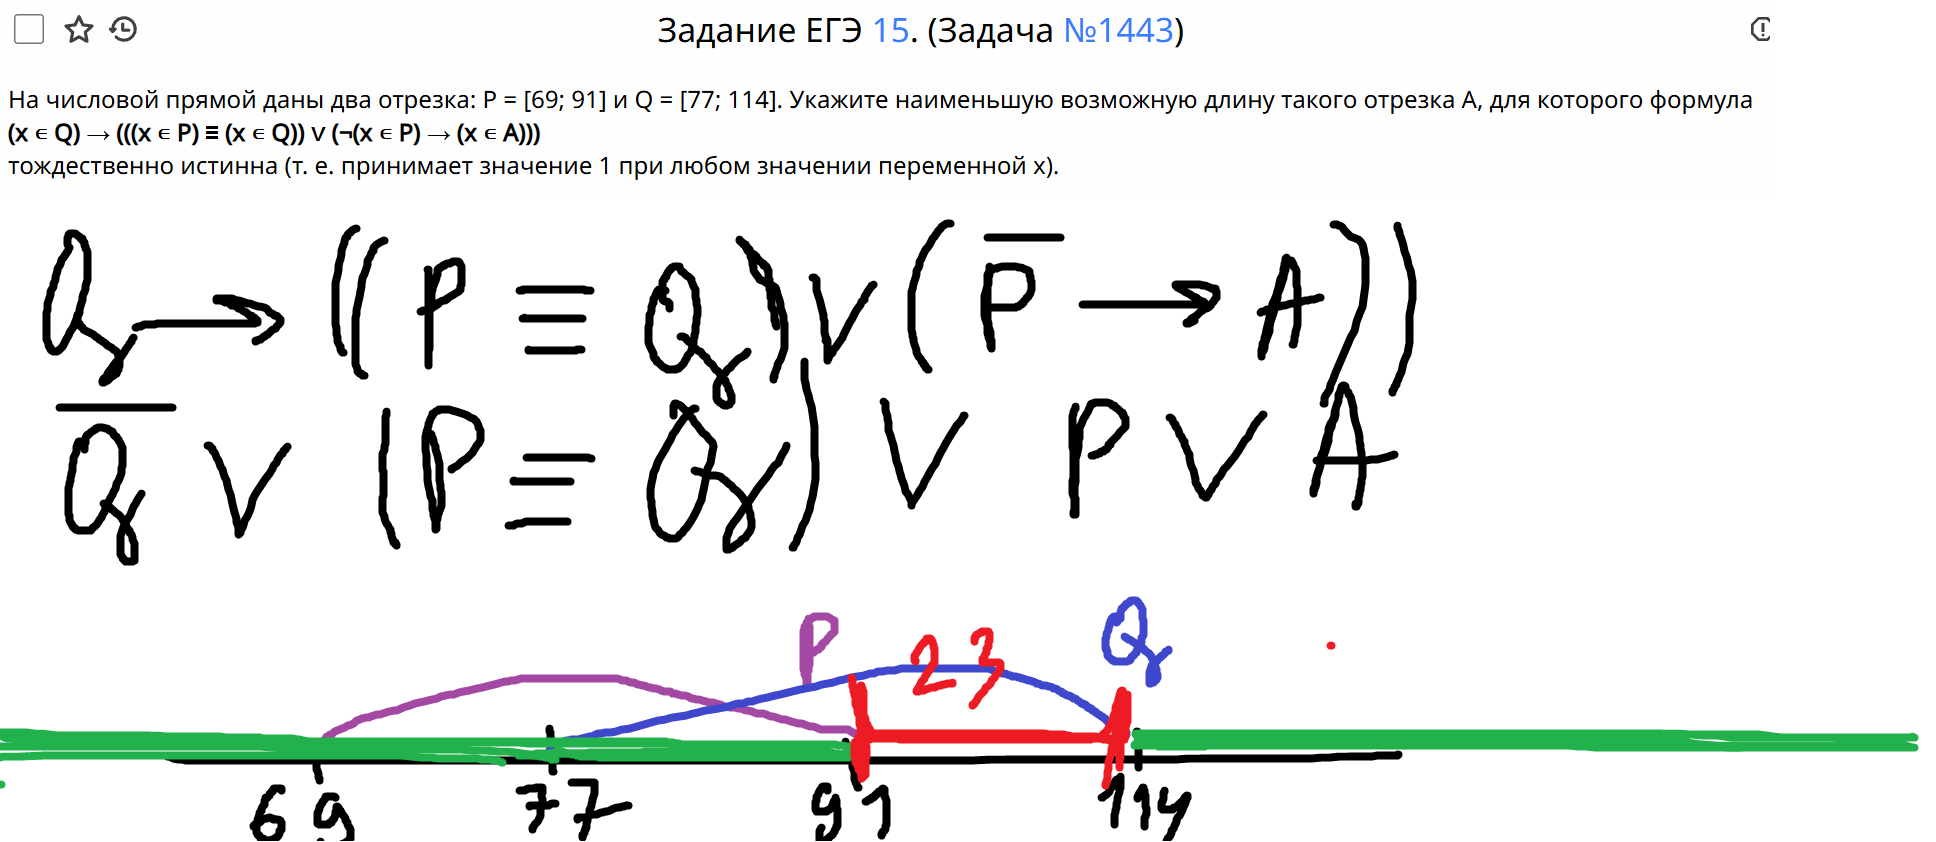 Задание ЕГЭ 15. (Задача №1443)
На числовой прямой даны два отрезка: P = [69; 91] и Q = [77; 114]. Укажите наименьшую возможную длину такого отрезка A, для которого формула
(x ∈ Q) → (((x ∈ P) ≡ (x ∈ Q)) ∨ (¬(x ∈ P) → (x ∈ A)))
тождественно истинна (т. е. принимает значение 1 при любом значении переменной x).
Q → ((P ≡ Q) ∨ (P̅ → A))
Q̅ ∨ (P ≡ Q) ∨ P ∨ A
P 23 Q
69 77 91 114